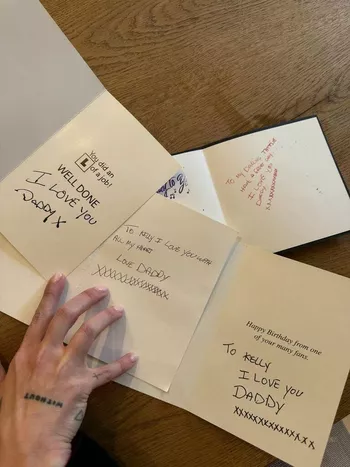 You did an
L of a job!
WELL DONE
I LOVE YOU
DADDY X
TO MY DARLING
HAVE A GREAT DAY
I LOVE YOU
DADDY
TO KELLY I LOVE YOU WITH
ALL MY HEART
LOVE DADDY
XXXXXXXXXXXXXXX
Happy Birthday from one
of your many fans.
TO KELLY
I LOVE YOU
DADDY
XXXXXXXXXXXXXX